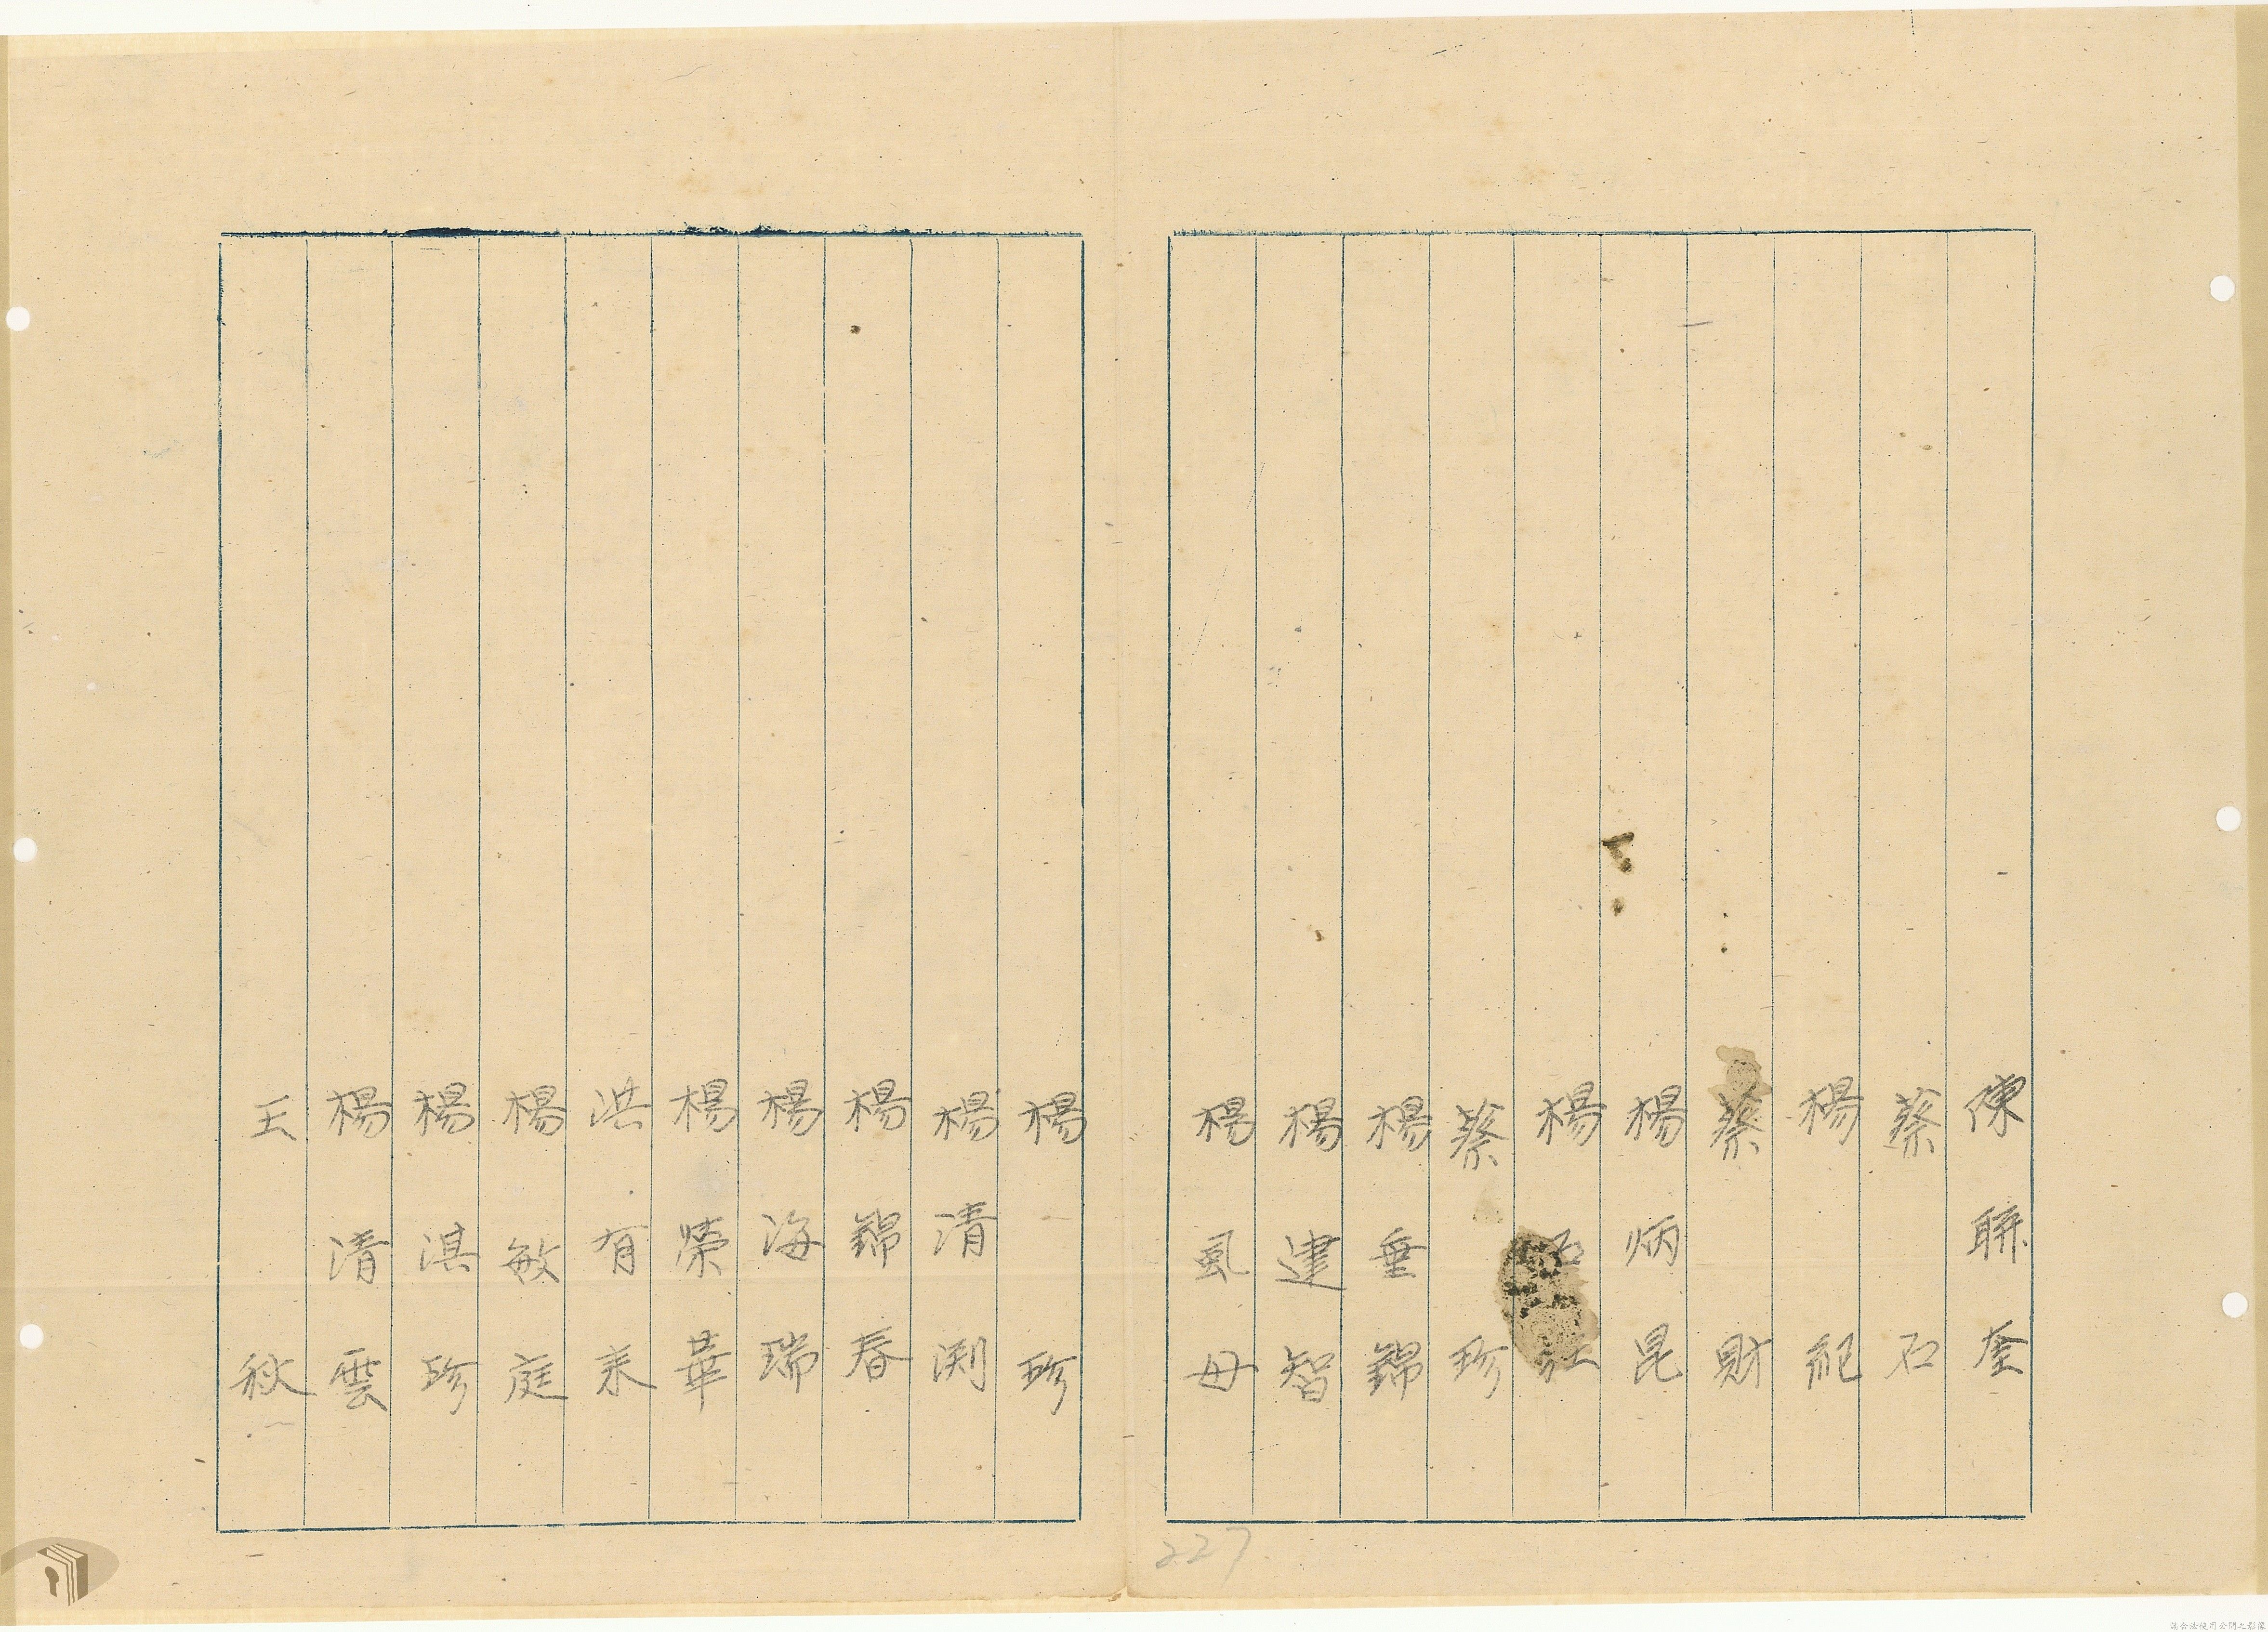 陳聯奎
蔡石
楊紀
蔡財
楊炳昆
楊石紅
蔡珍
楊垂錦
楊建智
楊虱母
楊珍
楊清渕
楊錦春
楊海瑞
楊榮華
洪有来
楊敏庭
楊淇珍
楊清雲
王秋
227
請合法使用公開之影像